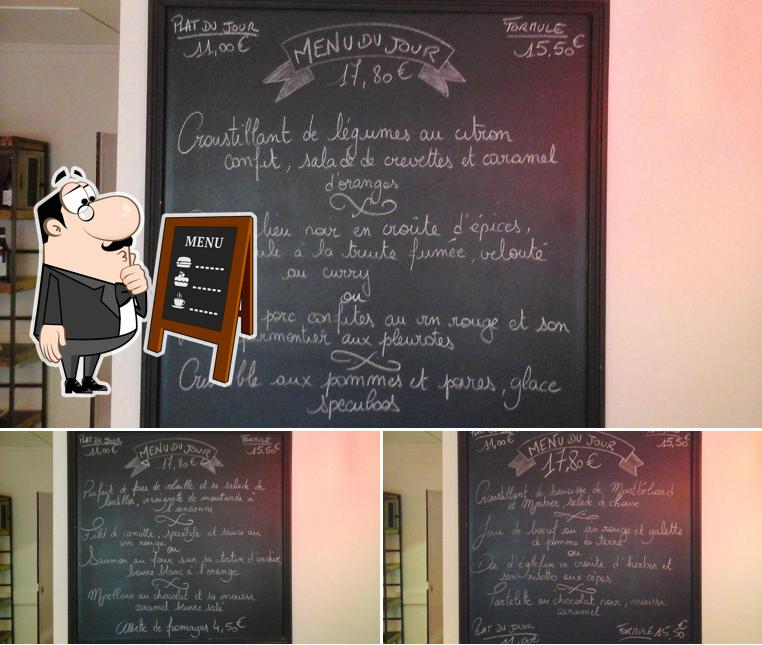 PLAT DU JOUR
11,00€
MENU DU JOUR
17,80€
FORMULE
15,50€
Croustillant de légumes au citron
confit, salade de crevettes et caramel
d'oranges
lieu noir en croûte d'épices,
à la truite fumée, velouté
au curry
ou
porc confites au vin rouge et son
parmentier aux pleurotes
aux pommes et poires, glace
speculoos
MENU
PLAT DU JOUR
11,00€
MENU DU JOUR
17,80€
FORMULE
15,50€
Parfait de foies de volaille et sa salade de
lentilles, vinaigrette de moutarde à
l'ancienne
Filet de canette, spaetzle et sauce au
vin rouge
ou
Saumon au four sur sa tatin d'endive
beurre blanc à l'orange
Moelleux au chocolat et sa mousse
caramel beurre salé
Assiette de fromages 4,50€
PLAT DU JOUR
11,00€
MENU DU JOUR
17,80€
15,50€
Croustillant de saucisse de Montbéliard
et Morbier, salade de choux
Joue de boeuf au vin rouge et galette
de pomme de terre
ou
Dos d'églefin en croûte d'herbes et
son risotto aux cèpes
Tartelette au chocolat noir, mousse
caramel
PLAT DU JOUR
11,00€
FORMULE 15,50€